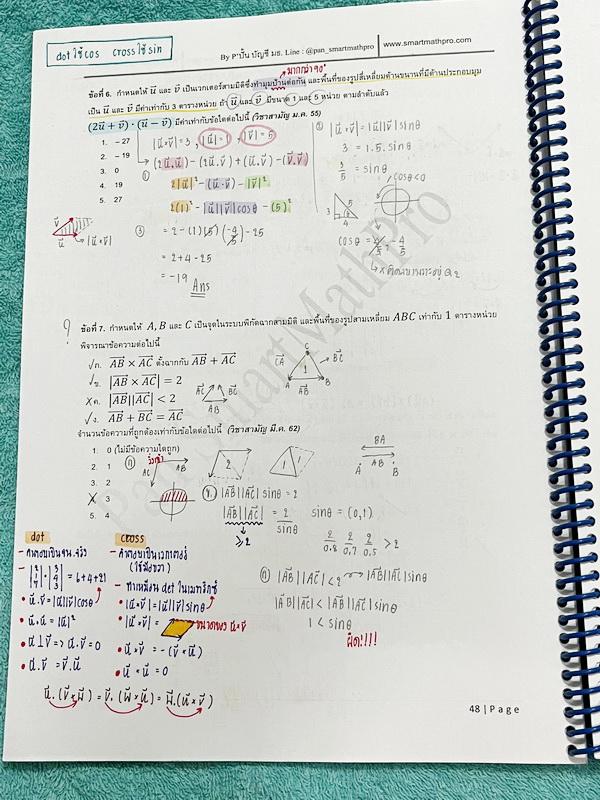 dot ใช้ cos cross ใช้ sin
By P'ปั้น บัญชี มธ. Line : @pan_smartmathpro www.smartmathpro.com
มากกว่า 90°
ข้อที่ 6. กำหนดให้ u⃗ และ v⃗ เป็นเวกเตอร์สามมิติซึ่งทำมุมป้านต่อกัน และพื้นที่ของรูปสี่เหลี่ยมด้านขนานที่มีด้านประกอบมุม
เป็น u⃗ และ v⃗ มีค่าเท่ากับ 3 ตารางหน่วย ถ้า u⃗ และ v⃗ มีขนาด 1 และ 5 หน่วย ตามลำดับแล้ว
(2u⃗ + v⃗) · (u⃗ − v⃗) มีค่าเท่ากับข้อใดต่อไปนี้ (วิชาสามัญ ม.ค. 55)
1. − 27
2. − 19
3. 0
4. 19
5. 27
|u⃗×v⃗| = 3 , |u⃗| = 1 , |v⃗| = 5
→ (2u⃗·u⃗) − (2u⃗·v⃗) + (u⃗·v⃗) − (v⃗·v⃗)
①
2|u⃗|² − (u⃗·v⃗) − |v⃗|²
2(1)² − |u⃗||v⃗|cosθ − (5)²
② |u⃗×v⃗| = |u⃗||v⃗|sinθ
3 = 1.5.sinθ
3/5 = sinθ
cosθ<0
3 5 4 θ
cosθ = 4/5, −4/5
v⃗ u⃗ → |u⃗×v⃗|
③ = 2 − (1)(5)(−4/5) − 25
= 2 + 4 − 25
= −19 Ans
? ข้อที่ 7. กำหนดให้ A, B และ C เป็นจุดในระบบพิกัดฉากสามมิติ และพื้นที่ของรูปสามเหลี่ยม ABC เท่ากับ 1 ตารางหน่วย
พิจารณาข้อความต่อไปนี้
√ก. AB⃗ × AC⃗ ตั้งฉากกับ AB⃗ + AC⃗
√ข. |AB⃗ × AC⃗| = 2
×ค. |AB⃗||AC⃗| < 2
√ง. AB⃗ + BC⃗ = AC⃗
AC⃗ BC⃗ AB
C CA⃗ BC⃗ 1 A AB⃗ B
จำนวนข้อความที่ถูกต้องเท่ากับข้อใดต่อไปนี้ (วิชาสามัญ มี.ค. 62)
1. 0 (ไม่มีข้อความใดถูก)
2. 1
3. 2
4. 3
5. 4
ก AC AB
2
1 1
BA
A AB B
ข. |AB⃗||AC⃗| sinθ = 2
|AB⃗||AC⃗| = 2/sinθ sinθ = (0,1)
≥ 2
2/0.8 2/0.7 2/0.5 > 2
|AB⃗||AC⃗| < 2 → |AB⃗||AC⃗|sinθ
|AB⃗||AC⃗| < |AB⃗||AC⃗|sinθ
1 < sinθ
ผิด!!!
dot
− คำตอบเป็นจน.จริง
− |2 1 7| · |3 4 3| = 6+4+21
• u⃗·v⃗ = |u⃗||v⃗|cosθ
• u⃗·u⃗ = |u⃗|²
• u⃗ ⊥ v⃗ => u⃗·v⃗ = 0
• u⃗·v⃗ = v⃗·u⃗
cross
− คำตอบเป็นเวกเตอร์
(ใช้มือขวา)
− ทำเหมือน det ในเมทริกซ์
• |u⃗×v⃗| = |u⃗||v⃗|sinθ
• |u⃗×v⃗| = → ขนาดของ u⃗×v⃗
• u⃗×v⃗ = −(v⃗×u⃗)
• u⃗×u⃗ = 0
u⃗·(v⃗×w⃗) = v⃗·(w⃗×u⃗) = w⃗·(u⃗×v⃗)
48 | Page
Pan SmartMathPro